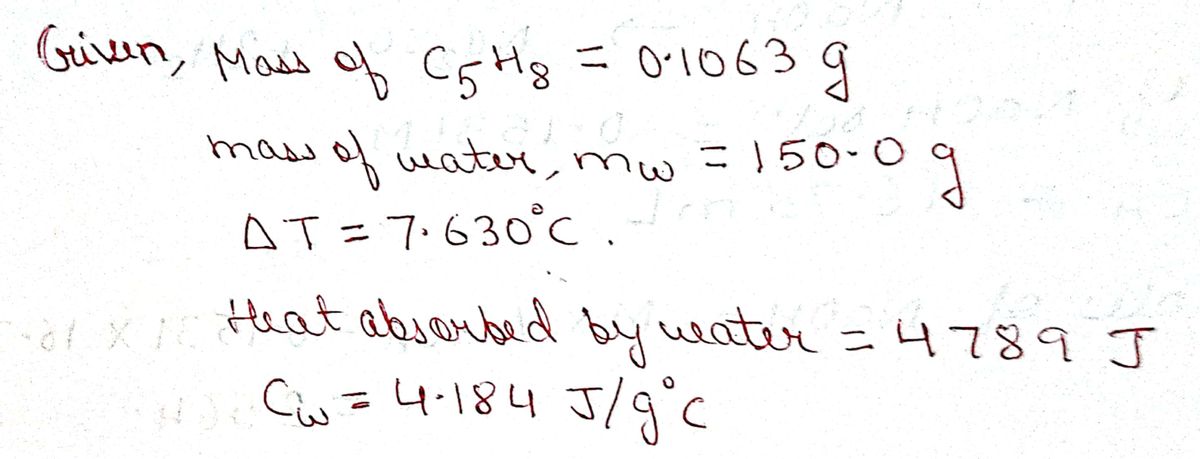 Given, Mass of C5H8 = 0.1063 g
mass of water, mw = 150.0 g
ΔT = 7.630°C.
Heat absorbed by water = 4789 J
Cw = 4.184 J/g°C